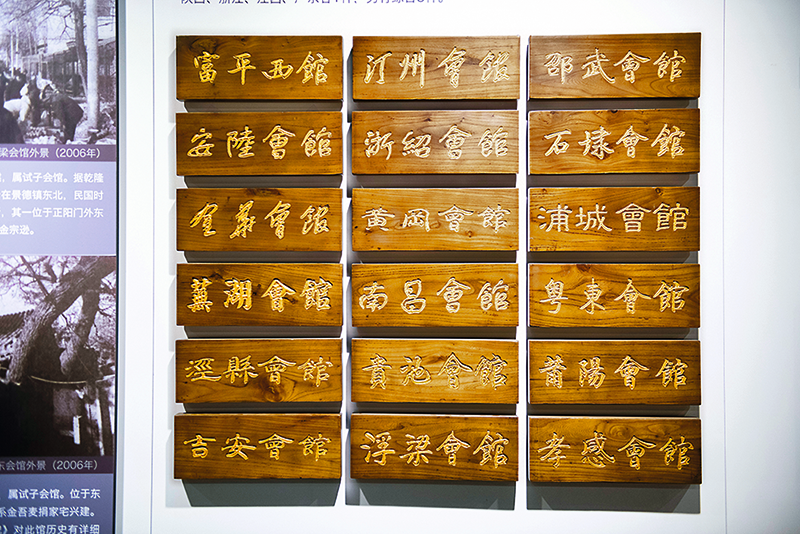 梁会馆外景（2006年）
，属试子会馆。据乾隆
在景德镇东北，民国时
，其一位于正阳门外东
金宗逊。
东会馆外景（2006年）
，属试子会馆。位于东
系金吾麦捐家宅兴建。
》对此馆历史有详细
富平西館
汀州會館
邵武會館
安陸會館
浙紹會館
石埭會館
金華會館
黄岡會館
浦城會館
蕪湖會館
南昌會館
粤東會館
涇縣會館
貴池會館
莆陽會館
吉安會館
浮梁會館
孝感會館